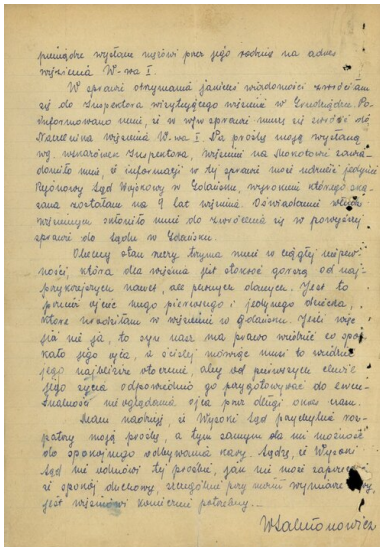 pieniądze wysłane mężowi przez jego rodzinę na adres
więzienia W-wa I.
W sprawie otrzymania jakiejś wiadomości zwróciłam
się do Inspektora wizytującego więzienie w Grudziądzu. Po-
informowano mnie, iż w w/w sprawie muszę się zwrócić do
Naczelnika więzienia W-wa I. Na prośbę moją wysłaną
wg. wskazówek Inspektora, więzienie na Mokotowie zawia-
domiło mnie, iż informacji w tej sprawie może udzielić jedynie
Rejonowy Sąd Wojskowy w Gdańsku, wyrokiem którego ska-
zana zostałam na 9 lat więzienia. Oświadczenie władz
więziennych skłoniło mnie do zwrócenia się w powyższej
sprawie do Sądu w Gdańsku.
Obecny stan rzeczy trzyma mnie w ciągłej niepew-
ności, która dla więźnia jest stokroć gorszą od naj-
przykrzejszych nawet, ale pewnych danych. Jest to
przecież ojciec mego pierwszego i jedynego dziecka,
które urodziłam w więzieniu w Gdańsku. Jeśli więc
nie ja, to syn nasz ma prawo wiedzieć co spot-
kało jego ojca, a ściślej mówiąc musi to wiedzieć
jego najbliższe otoczenie, aby od pierwszych chwil
jego życia odpowiednio go przygotowywać do ewen-
tualności nieoglądania ojca przez długi okres czasu.
Mam nadzieję, iż Wysoki Sąd przychylnie roz-
patrzy moją prośbę, a tym samym da mi możność
do spokojnego odbywania kary. Sądzę, iż Wysoki
Sąd nie odmówi tej prośbie, jak nie może zaprzeczyć
iż spokój duchowy, szczególnie przy moim wymiarze kary,
jest więźniowi koniecznie potrzebny.